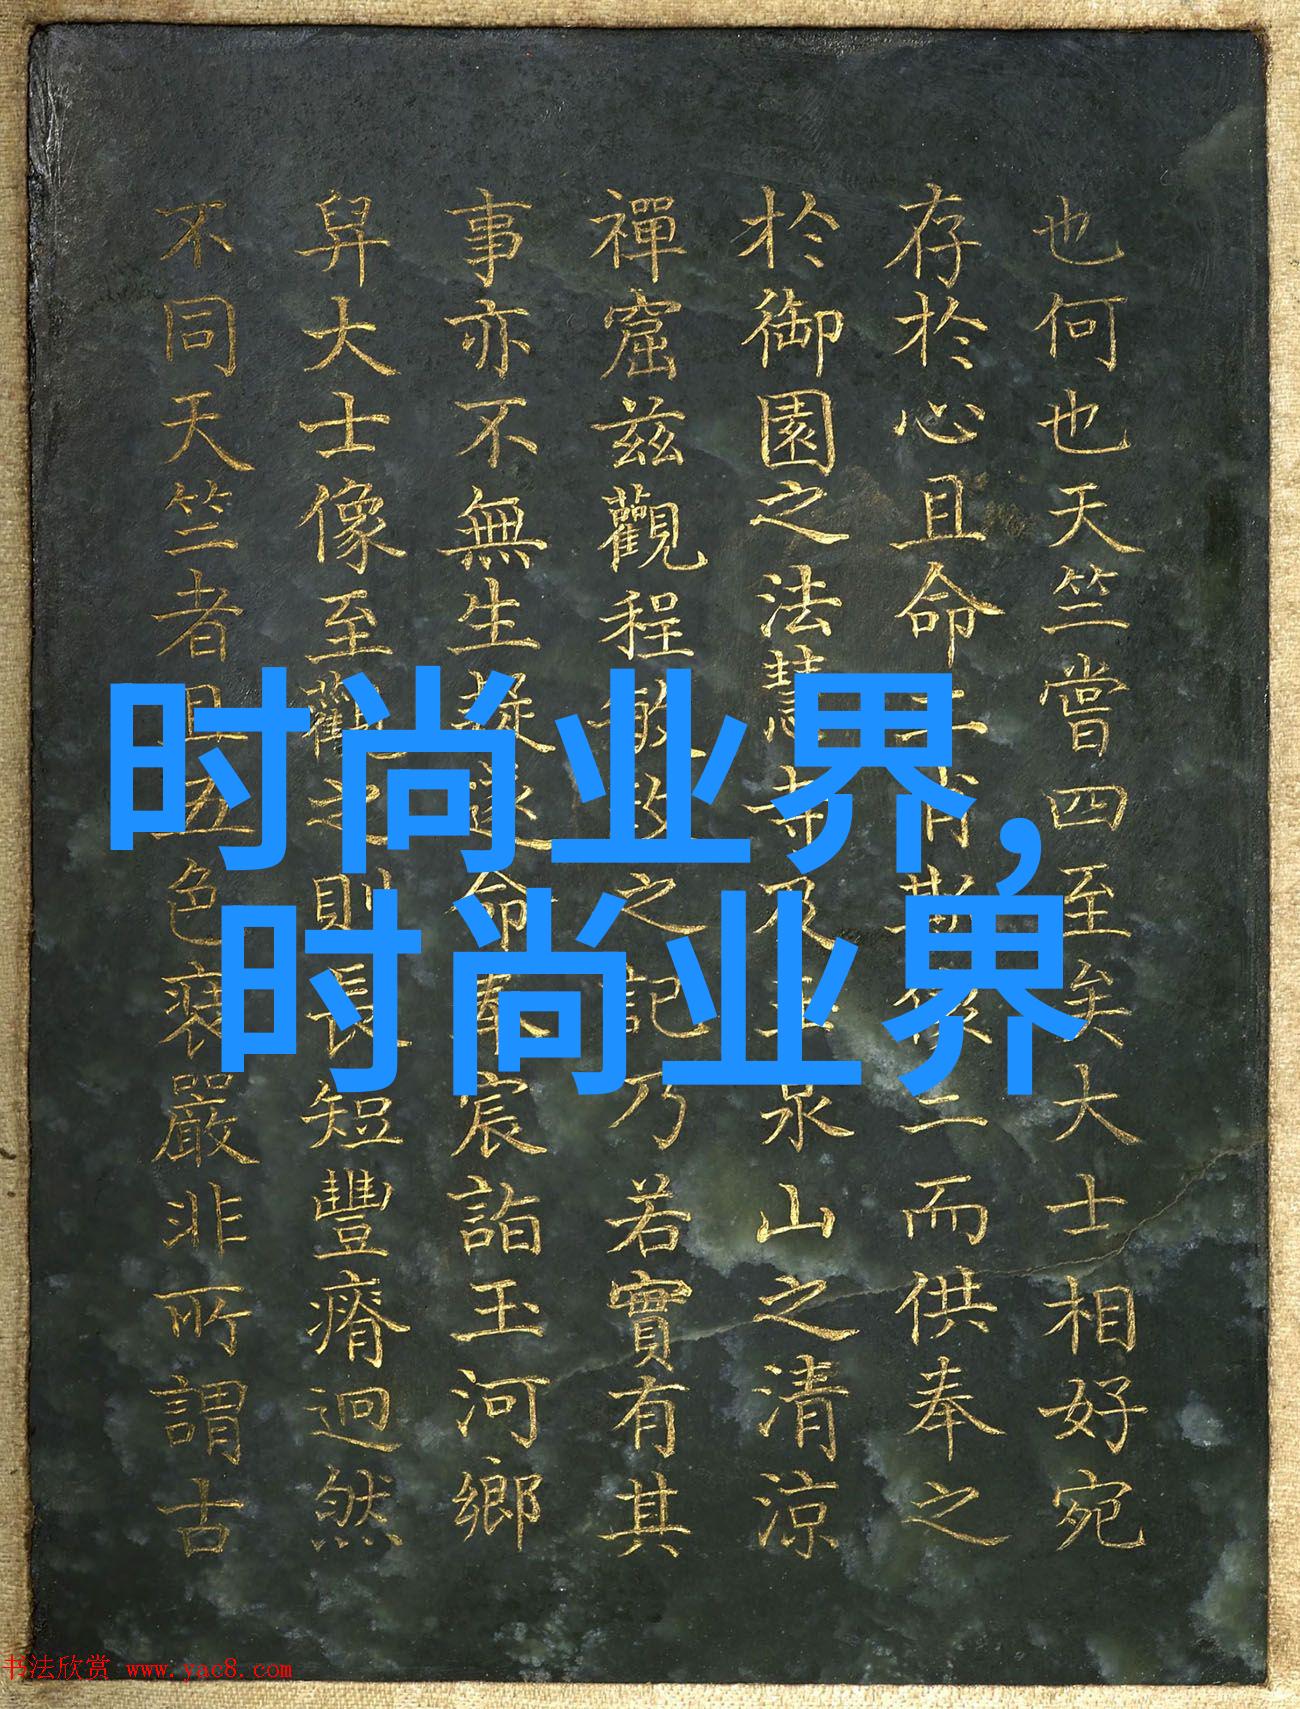 也何也天竺嘗四至矣大士相好宛
存於心且命工肖斯像二而供奉之
於御園之法慧寺及玉泉山之清涼
禪窟茲觀程敏政之記乃若實有其
事亦不無生疑遂命奉宸詣玉河鄉
舁大士像至觀之則長短豐瘠迥然
不同天竺者且五色裝嚴非所謂古
时尚业界,
时尚业界
书法欣赏 www.yac8.com